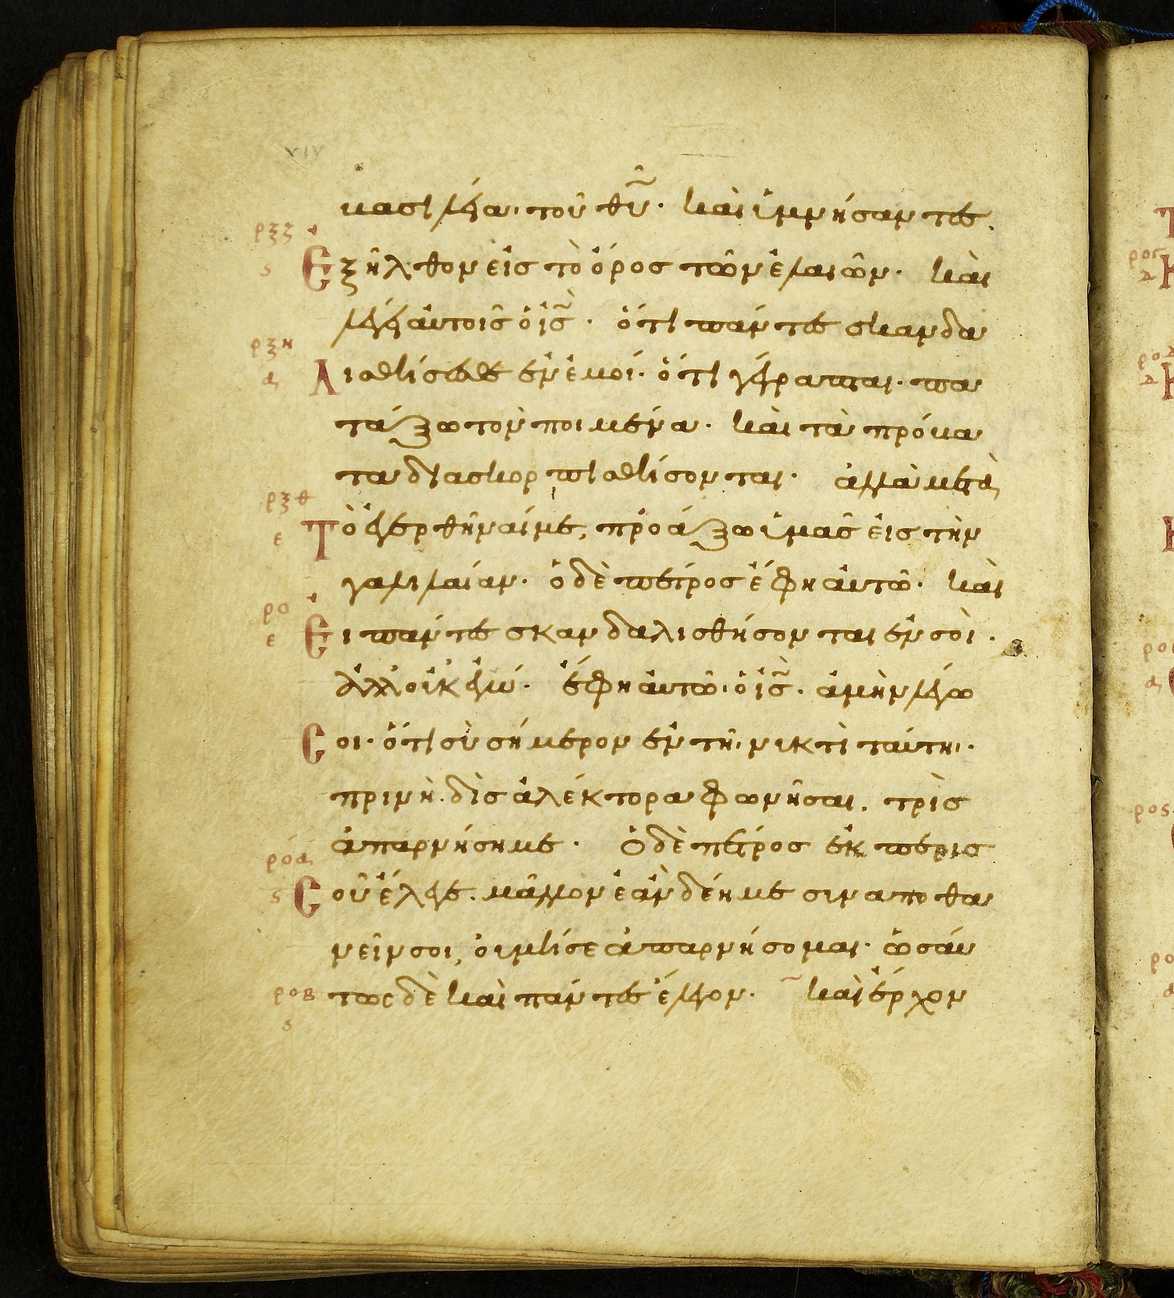 βασιλεία τοῦ θῦ· καὶ ὑμνήσαντες,
ρξζ ϛ Ἐξῆλθον εἰς τὸ ὄρος τῶν ἐλαιῶν· καὶ
λέγει αὐτοῖς ὁ ἰς̄· ὅτι πάντες σκανδα
ρξη δ λισθήσεσθε ἐν ἐμοί· ὅτι γέγραπται· πα
τάξω τὸν ποιμένα· καὶ τὰ πρόβα
τα διασκορπισθήσονται· ἀλλὰ μετὰ
ρξθ ϵ Τὸ ἐγερθῆναί με, προάξω ὑμᾶς εἰς τὴν
γαλιλαίαν· ὁ δὲ πέτρος ἔφη αὐτῶ· καὶ
ρο ϵ Ἐι πάντες σκανδαλισθήσονται ἐν σοὶ·
ἀλλ' οὐκ ἐγώ· ἔφη αὐτῶ· ὁ ἰς̄· ἀμὴν λέγω
Σοι· ὅτι σὺ σήμερον ἐν τῆι νυκτὶ ταύτηι·
πρινὴ· δὶς ἀλέκτορα φωνῆσαι, τρὶς
ἀπαρνήση με· Ὁ δὲ πέτρος ἐκ περισ
ροα ϛ Σοῦ ἔλεγε· μᾶλλον ἐὰν δέη με συναποθα
νεῖν σοι, οὐ μή σε ἀπαρνήσομαι· ὡσάυ
ροβ ϛ τως δὲ καὶ πάντες ἔλεγον· καὶ ἔρχον